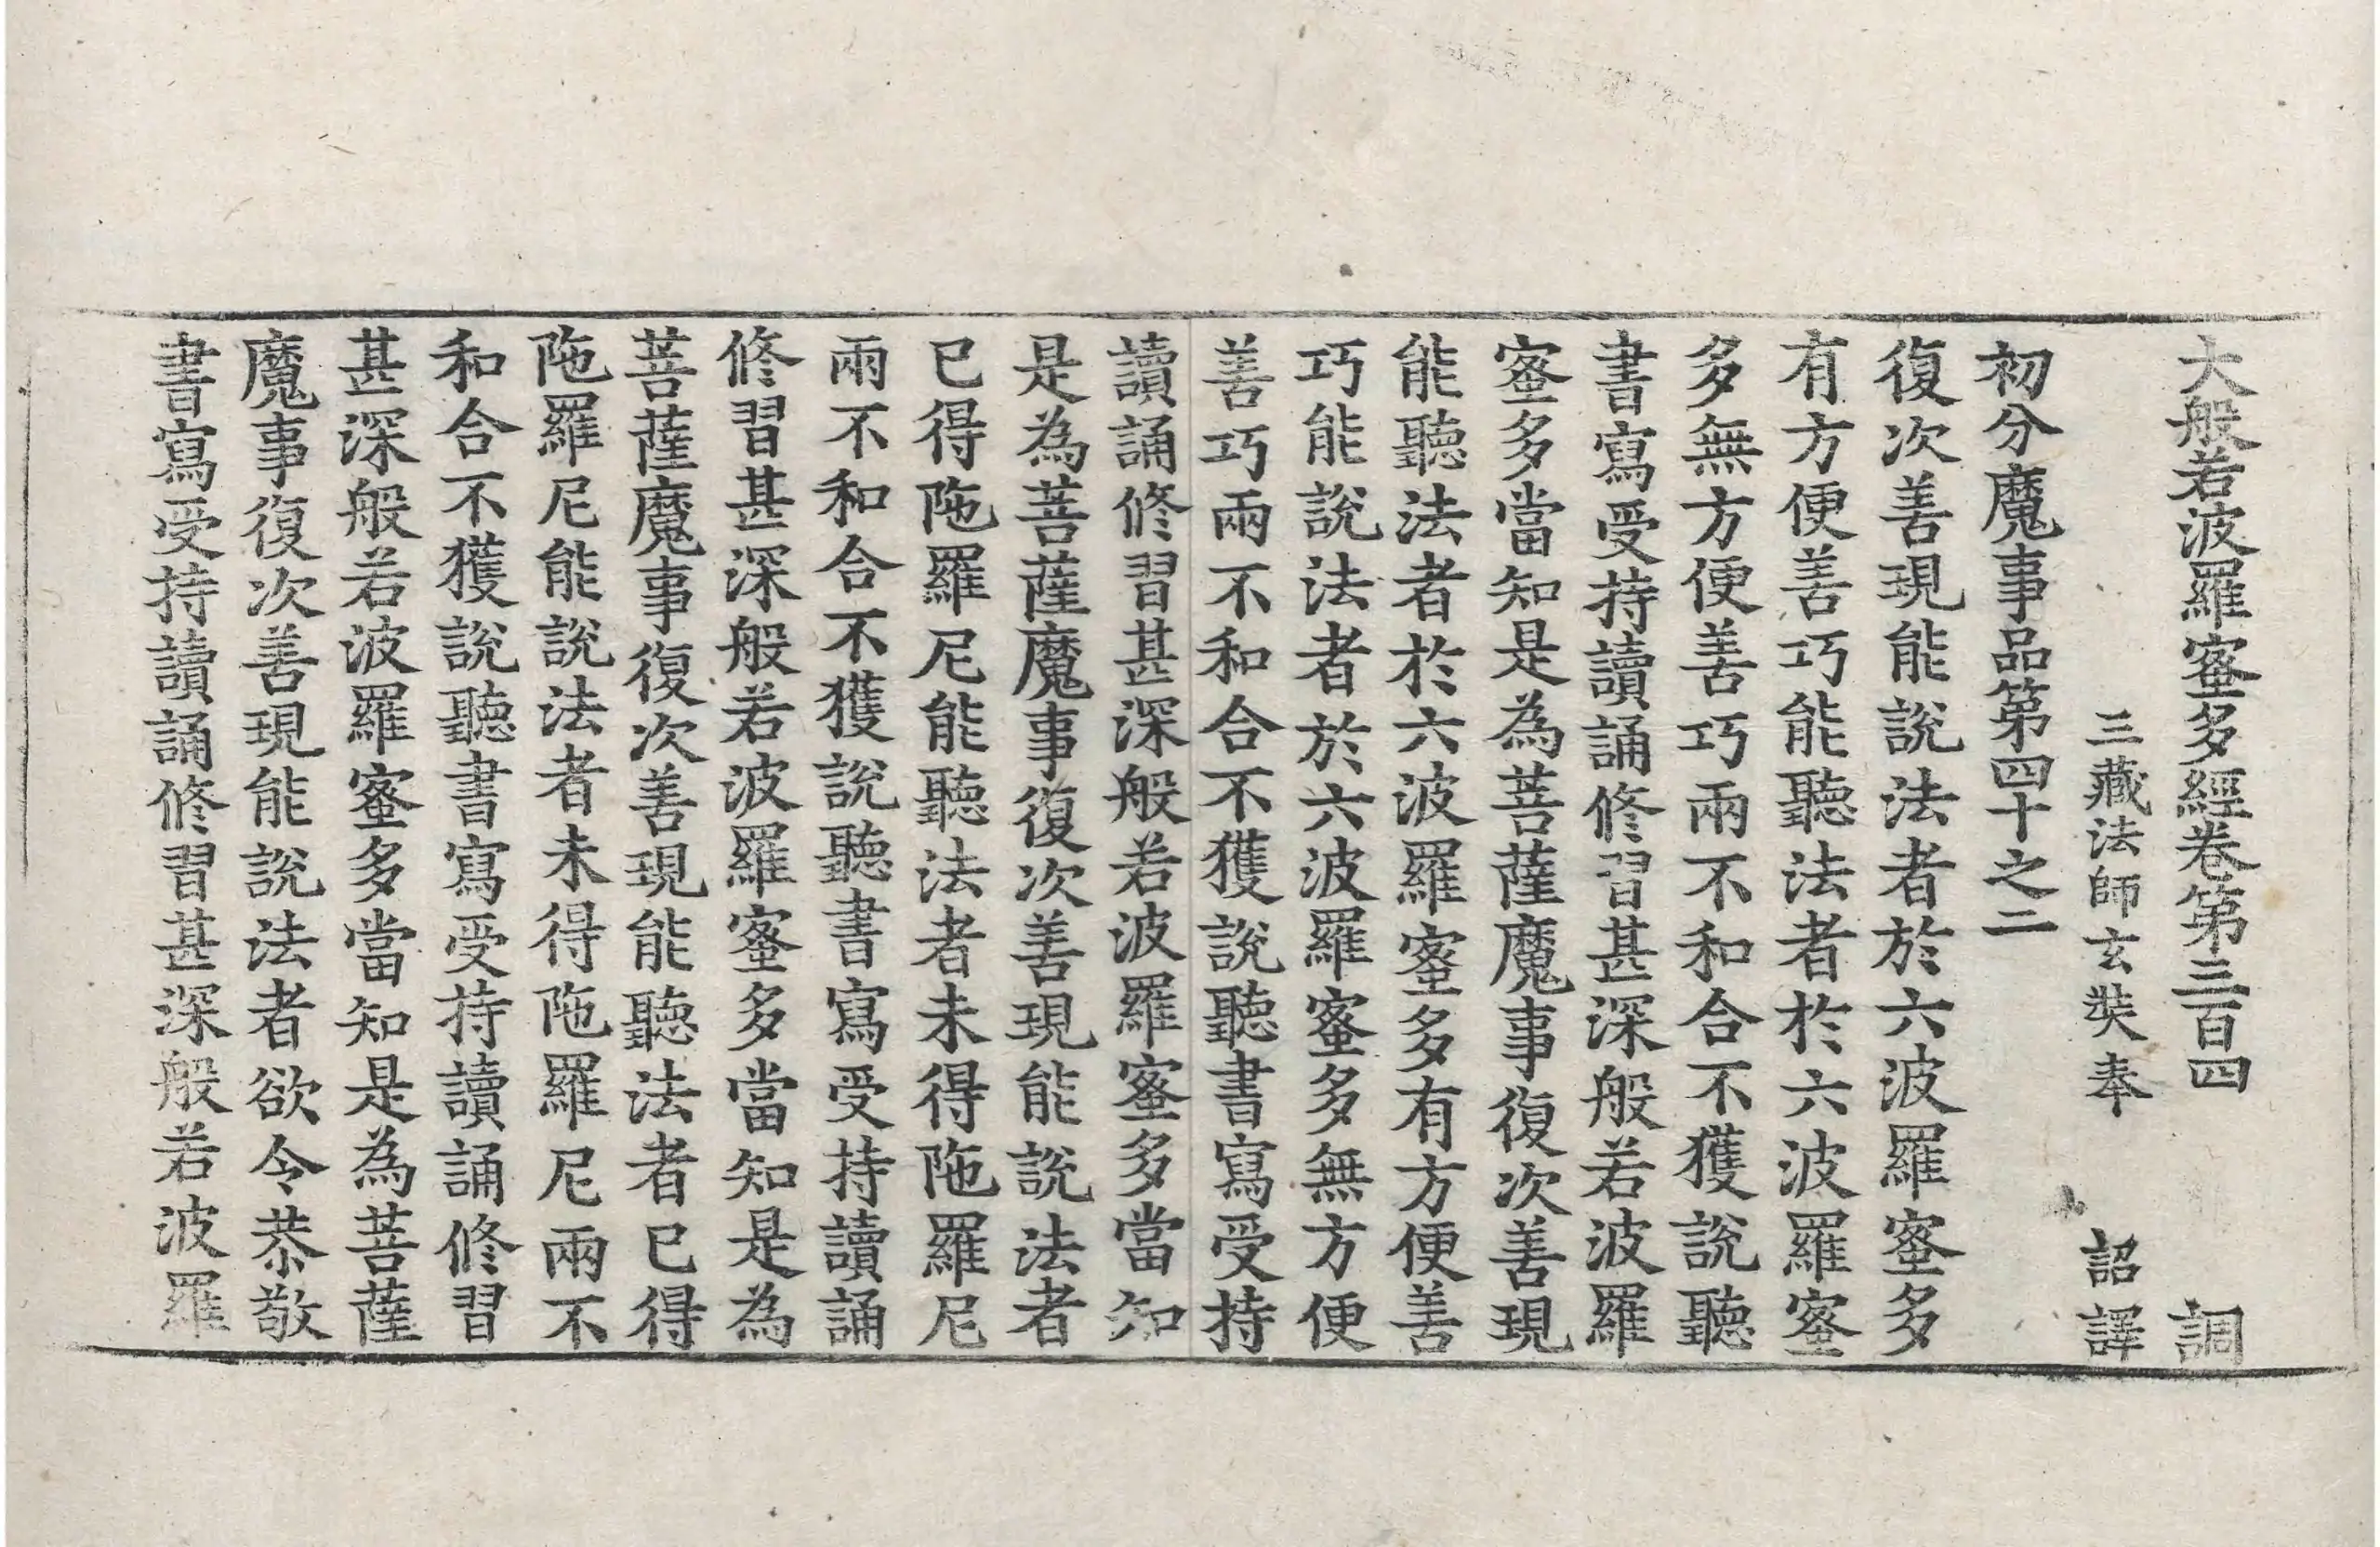 大般若波羅蜜多經卷第三百四　調
三藏法師玄奘奉　詔譯
初分魔事品第四十之二
復次善現能說法者於六波羅蜜多
有方便善巧能聽法者於六波羅蜜
多無方便善巧兩不和合不獲說聽
書寫受持讀誦修習甚深般若波羅
蜜多當知是為菩薩魔事復次善現
能聽法者於六波羅蜜多有方便善
巧能說法者於六波羅蜜多無方便
善巧兩不和合不獲說聽書寫受持
讀誦修習甚深般若波羅蜜多當知
是為菩薩魔事復次善現能說法者
已得陁羅尼能聽法者未得陁羅尼
兩不和合不獲說聽書寫受持讀誦
修習甚深般若波羅蜜多當知是為
菩薩魔事復次善現能聽法者已得
陁羅尼能說法者未得陁羅尼兩不
和合不獲說聽書寫受持讀誦修習
甚深般若波羅蜜多當知是為菩薩
魔事復次善現能說法者欲令恭敬
書寫受持讀誦修習甚深般若波羅